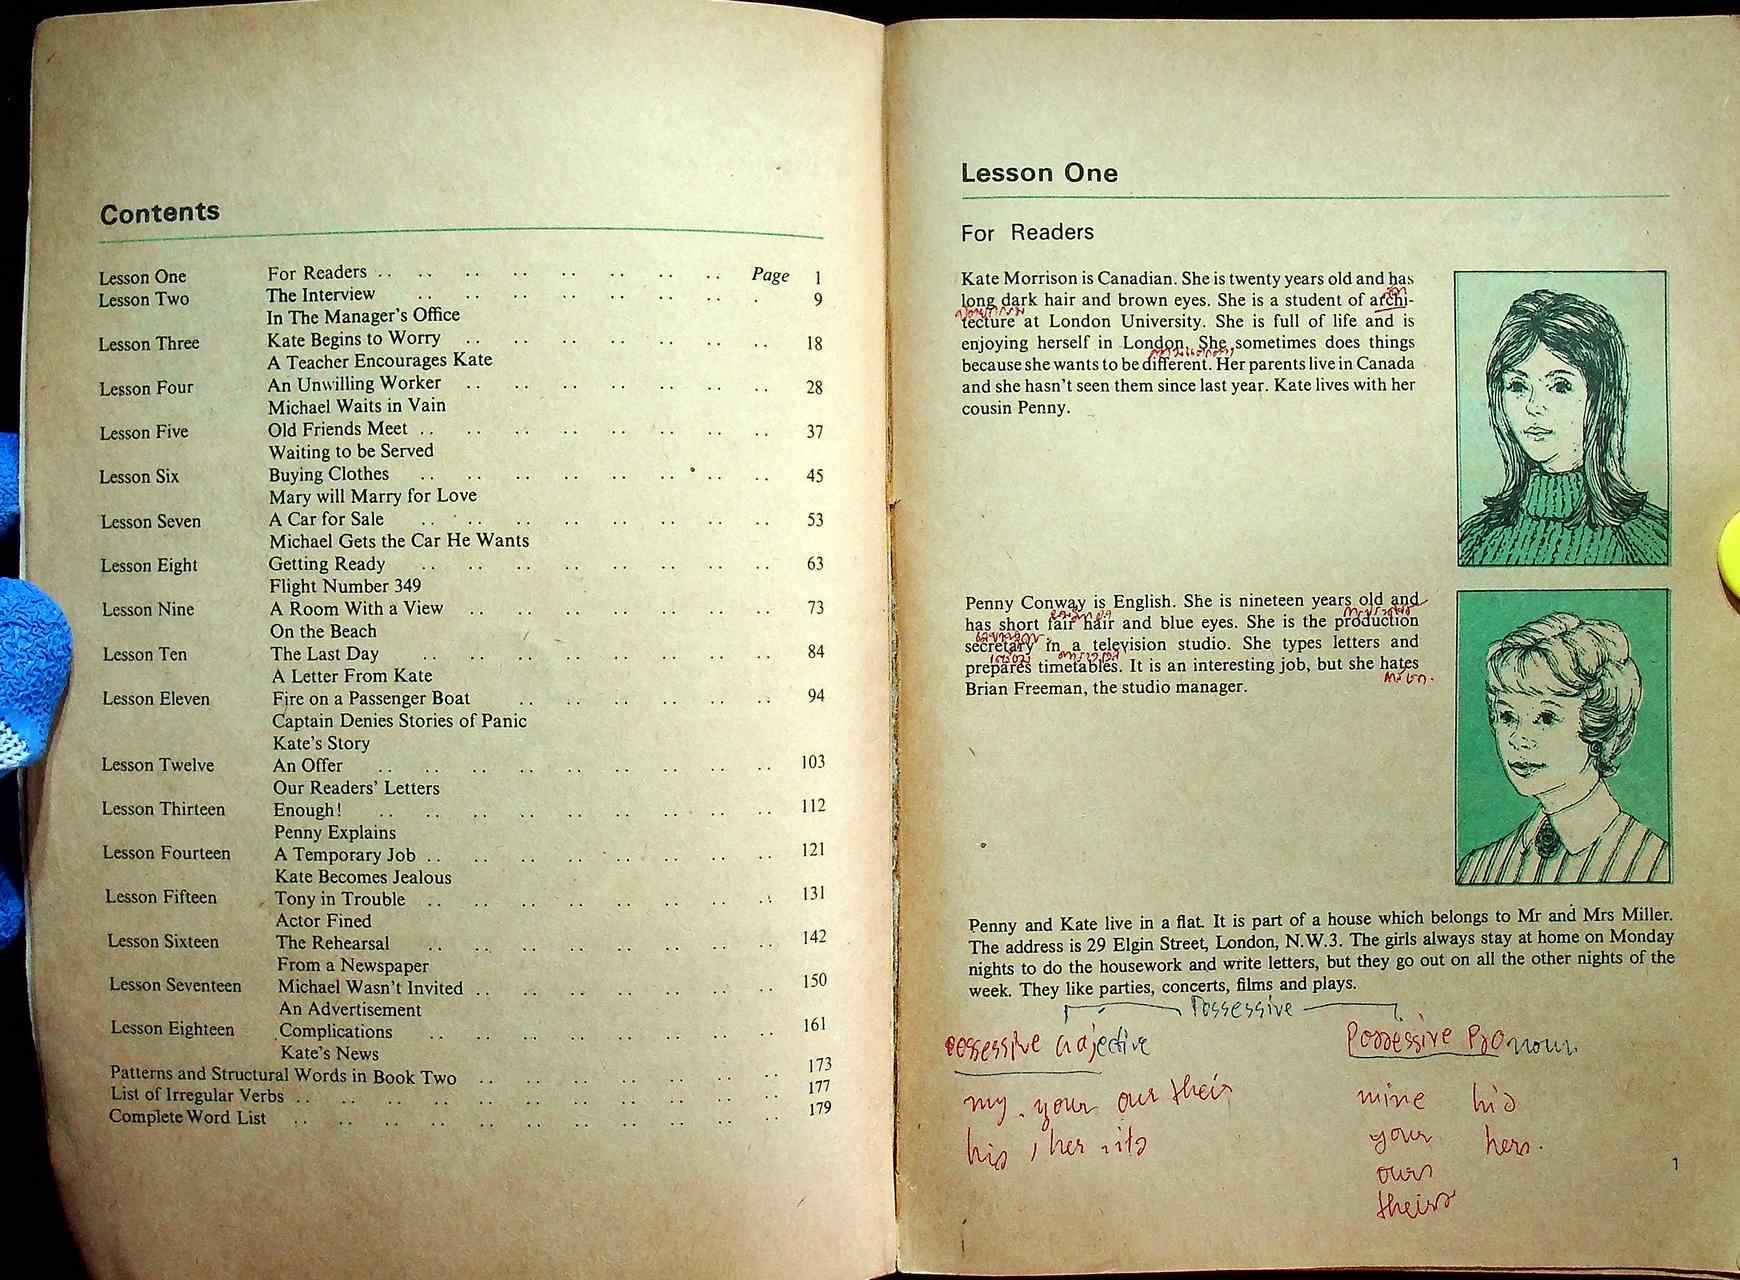 Contents
Lesson One For Readers .. .. .. .. .. .. .. .. Page 1
Lesson Two The Interview .. .. .. .. .. .. .. . 9
In The Manager's Office
Lesson Three Kate Begins to Worry .. .. .. .. .. .. .. 18
A Teacher Encourages Kate
Lesson Four An Unwilling Worker .. .. .. .. .. .. .. 28
Michael Waits in Vain
Lesson Five Old Friends Meet .. .. .. .. .. .. .. .. 37
Waiting to be Served
Lesson Six Buying Clothes .. .. .. .. .. .. .. .. 45
Mary will Marry for Love
Lesson Seven A Car for Sale .. .. .. .. .. .. .. .. 53
Michael Gets the Car He Wants
Lesson Eight Getting Ready .. .. .. .. .. .. .. .. 63
Flight Number 349
Lesson Nine A Room With a View .. .. .. .. .. .. .. 73
On the Beach
Lesson Ten The Last Day .. .. .. .. .. .. .. .. 84
A Letter From Kate
Lesson Eleven Fire on a Passenger Boat .. .. .. .. .. .. 94
Captain Denies Stories of Panic
Kate's Story
Lesson Twelve An Offer .. .. .. .. .. .. .. .. .. 103
Our Readers' Letters
Lesson Thirteen Enough! .. .. .. .. .. .. .. .. .. 112
Penny Explains
Lesson Fourteen A Temporary Job .. .. .. .. .. .. .. .. 121
Kate Becomes Jealous
Lesson Fifteen Tony in Trouble .. .. .. .. .. .. .. .. 131
Actor Fined
Lesson Sixteen The Rehearsal .. .. .. .. .. .. .. .. 142
From a Newspaper
Lesson Seventeen Michael Wasn't Invited .. .. .. .. .. .. .. 150
An Advertisement
Lesson Eighteen Complications .. .. .. .. .. .. .. .. 161
Kate's News
Patterns and Structural Words in Book Two .. .. .. .. .. .. .. 173
List of Irregular Verbs .. .. .. .. .. .. .. .. .. .. .. 177
Complete Word List .. .. .. .. .. .. .. .. .. .. .. 179
Lesson One
For Readers
Kate Morrison is Canadian. She is twenty years old and has
long dark hair and brown eyes. She is a student of archi-
tecture at London University. She is full of life and is
enjoying herself in London. She sometimes does things
because she wants to be different. Her parents live in Canada
and she hasn't seen them since last year. Kate lives with her
cousin Penny.
Penny Conway is English. She is nineteen years old and
has short fair hair and blue eyes. She is the production
secretary in a television studio. She types letters and
prepares timetables. It is an interesting job, but she hates
Brian Freeman, the studio manager.
Penny and Kate live in a flat. It is part of a house which belongs to Mr and Mrs Miller.
The address is 29 Elgin Street, London, N.W.3. The girls always stay at home on Monday
nights to do the housework and write letters, but they go out on all the other nights of the
week. They like parties, concerts, films and plays.
Possessive
possessive adjective Possessive Pronoun.
my . your our their mine his
his , her , its your hers.
ours
theirs
1